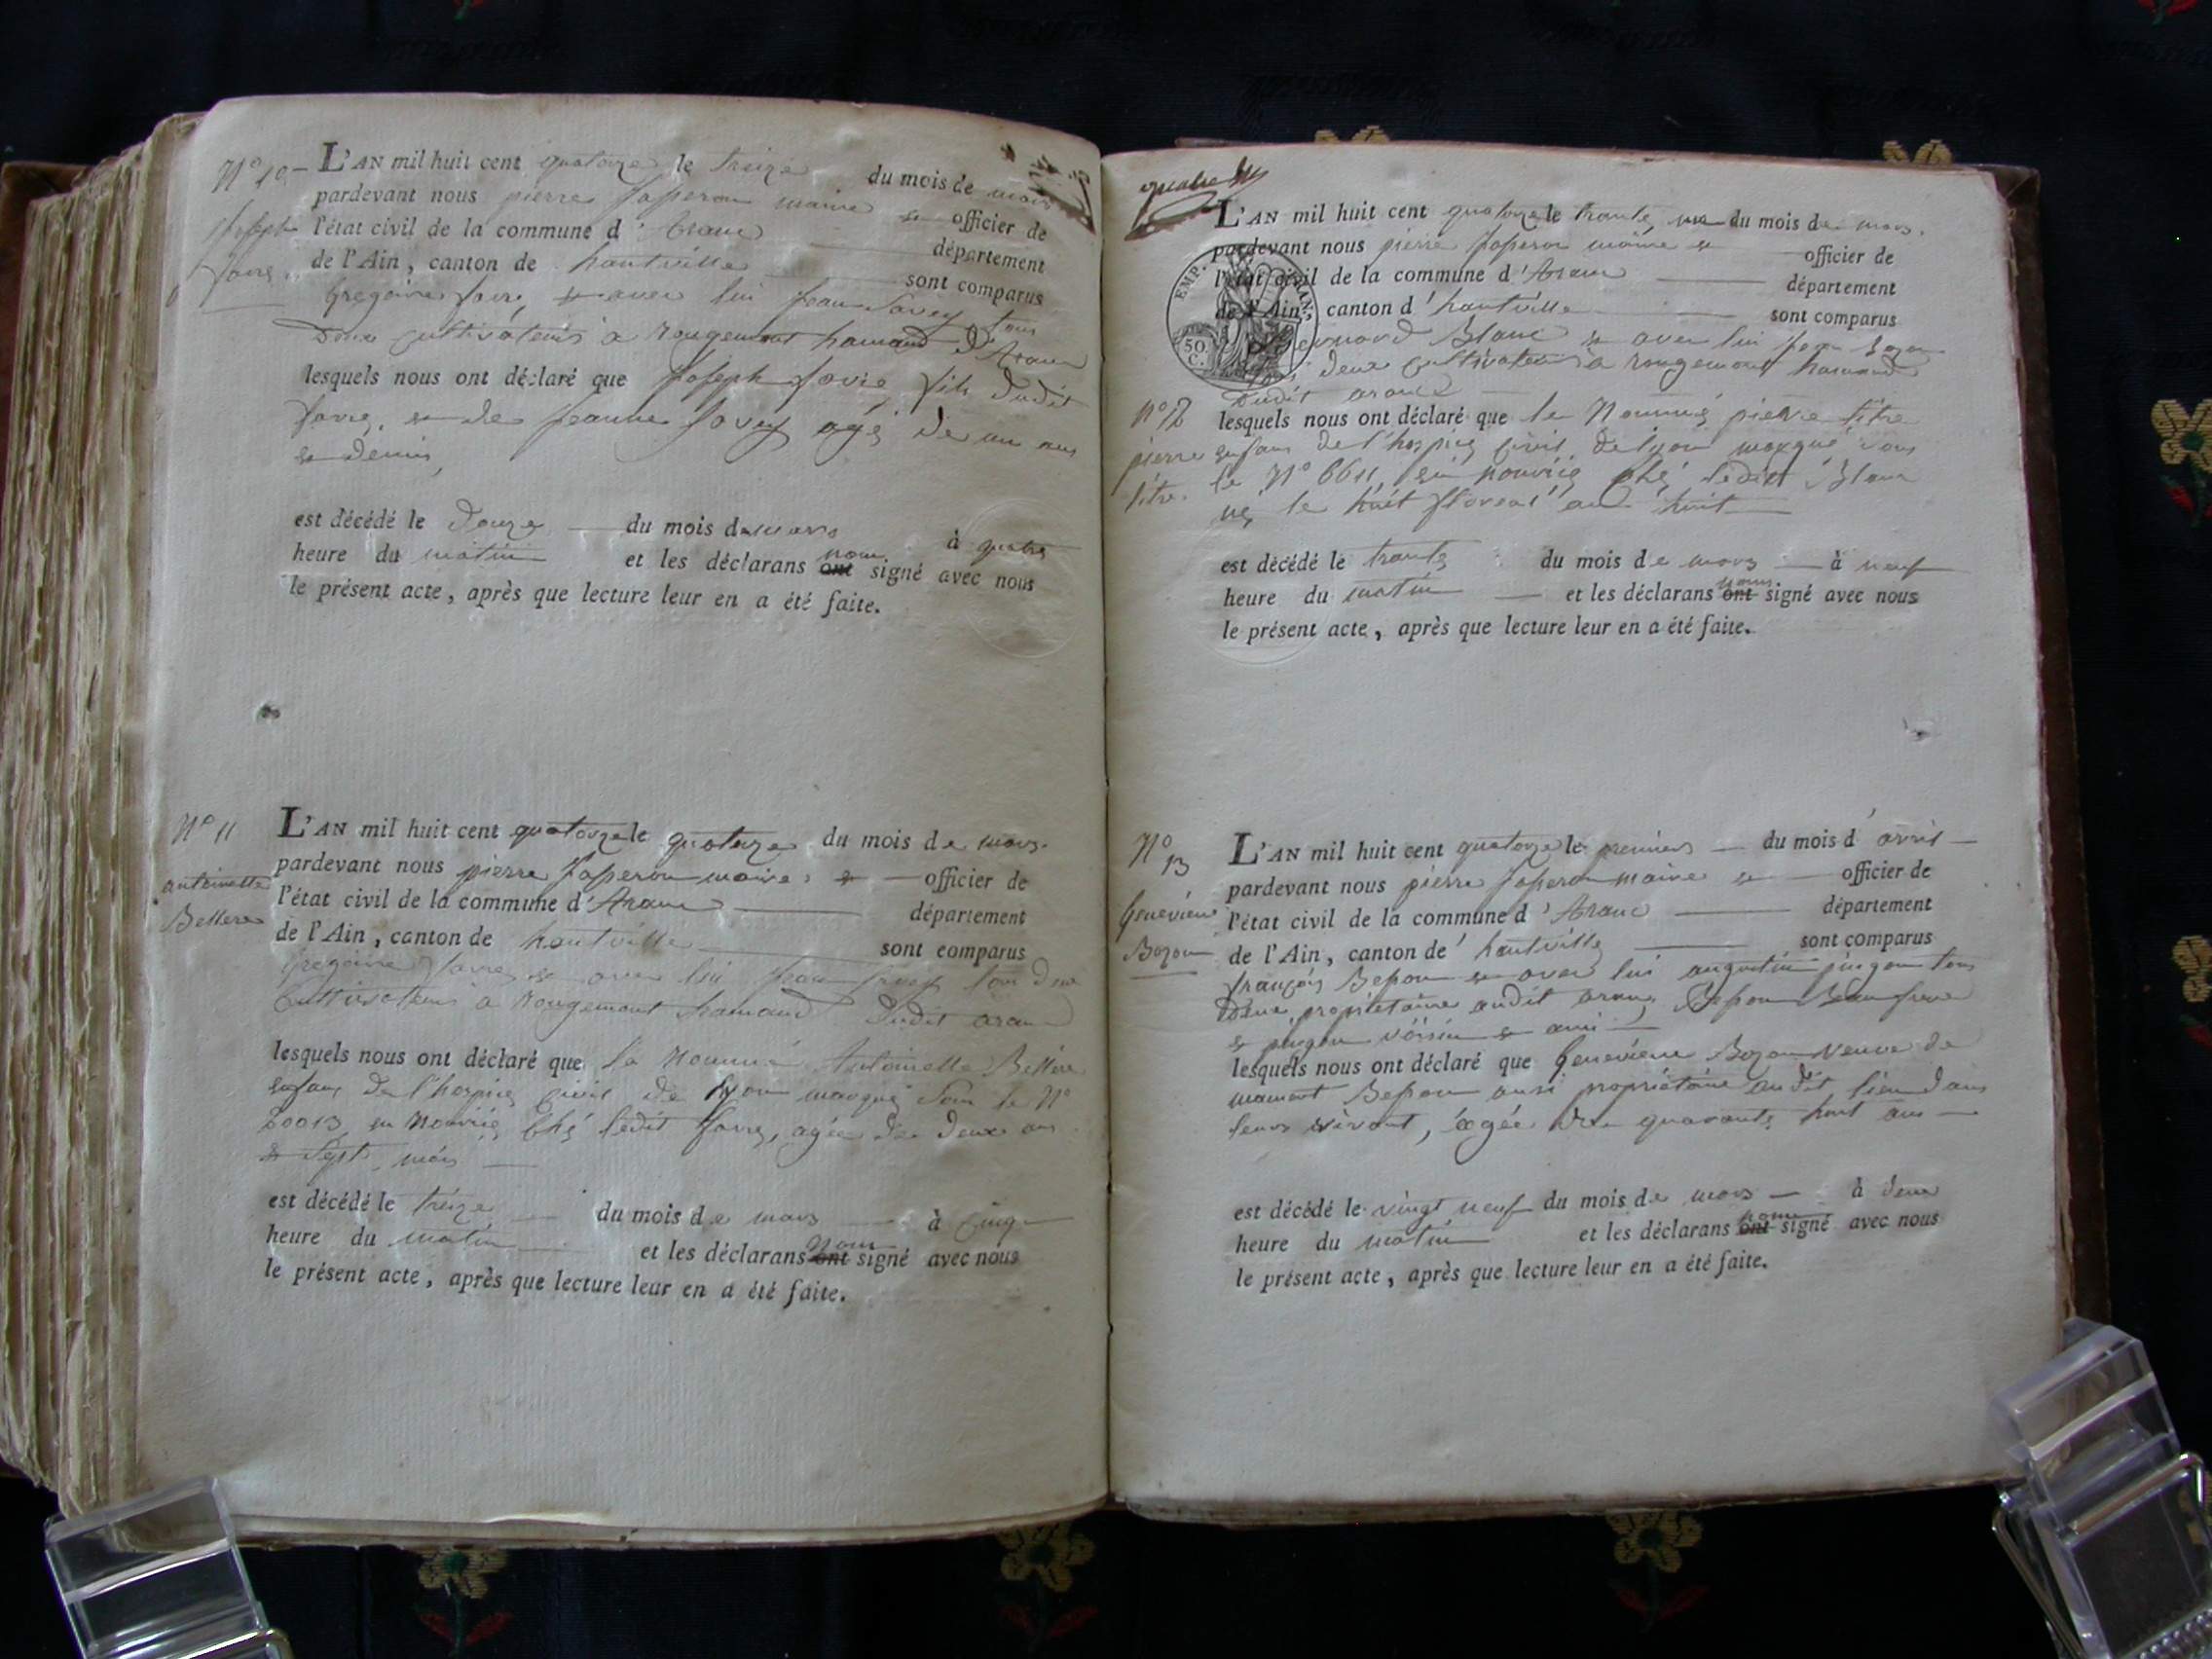 N° 10
Joseph
favre
L'AN mil huit cent quatorze le treize du mois de mars
pardevant nous pierre Jaseron maire et officier de
l'état civil de la commune d'Aranc département
de l'Ain, canton de hautville sont comparus
gregoire favre et avec lui jean Savey tous
Deux cultivateurs a Rougemont hamaud d'Aranc
lesquels nous ont déclaré que Joseph favre fils dudit
favre, et de jeanne Savey agé de un ans
et demis
est décédé le Douze du mois de mars à quatre
heure du matin et les déclarans nons ont signé avec nous
le présent acte, après que lecture leur en a été faite.
N° 11
antoinette
Bellere
L'AN mil huit cent quatorze le quatorze du mois de mars
pardevant nous pierre Jaseron maire et officier de
l'état civil de la commune d'Aranc département
de l'Ain, canton de hautville sont comparus
Gregoire favre et avec lui jean Savey tous deux
Cultivateurs a Rougemont hamaud dudit aranc
lesquels nous ont déclaré que la Nommé Antoinette Bellere
enfans de l'hospice civil de lyon marqué sous le N°
en Nourice Ché ledit favre, agée de Deux ans
et Sept mois
est décédé le treize du mois de mars à cinq
heure du matin et les déclarans nons ont signé avec nous
le présent acte, après que lecture leur en a été faite.
quatre
EMP.
50.
C.
L'AN mil huit cent quatorze le trante un du mois de mars.
pardevant nous pierre Jaseron maire et officier de
l'état civil de la commune d'Aranc département
de l'Ain, canton d'hautville sont comparus
Bernard Blanc et avec lui jean
tous deux cultivateurs a rougemont hamaud
Dudit aranc
N° 12
pierre
litre
lesquels nous ont déclaré que le Nommé pierre litre
enfans de l'hospice civil de lyon marqué sous
le N° 6611 en nourice ché ledit Blanc
né le huit floreal an huit
est décédé le trante du mois de mars à neuf
heure du matin et les déclarans nons ont signé avec nous
le présent acte, après que lecture leur en a été faite.
N°
13
Genevieve
Bozon
L'AN mil huit cent quatorze le premiers du mois d'avril
pardevant nous pierre Jaseron maire et officier de
l'état civil de la commune d'Aranc département
de l'Ain, canton de hautville sont comparus
françois Beson et avec lui augustin pingon tous
Deux propriétaire audit aranc, Beson Beaufrere
et pingon voisin et ami
lesquels nous ont déclaré que Genevieve Bozon Veuve de
Beson ausi propriétaire audit lieu dans
leurs vivant, agée de quarante huit ans
est décédé le vingt neuf du mois de mars à deux
heure du matin et les déclarans nons ont signé avec nous
le présent acte, après que lecture leur en a été faite.